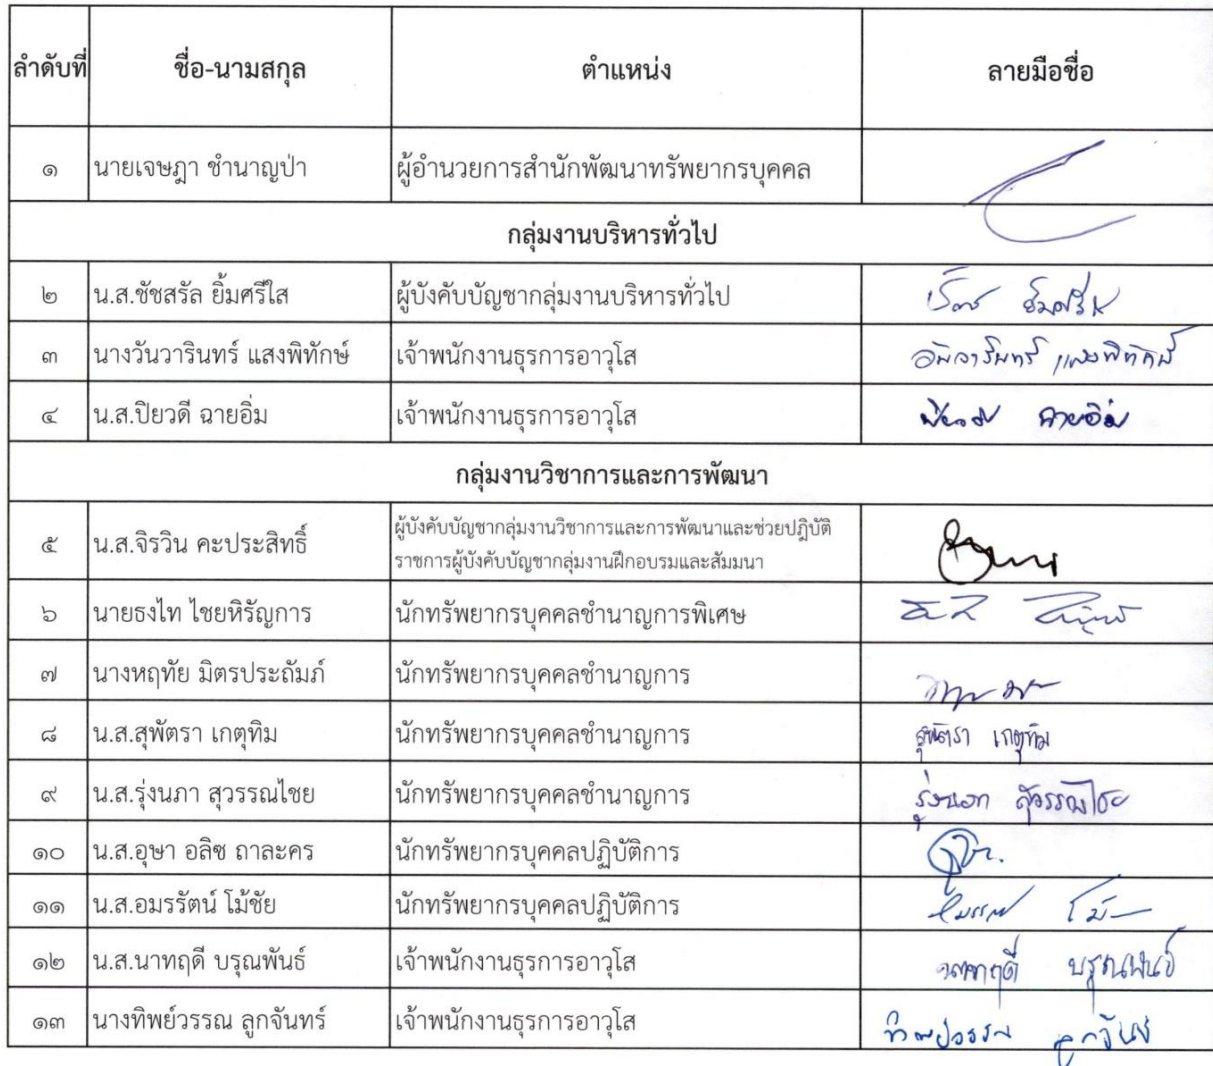 ลำดับที่ ชื่อ-นามสกุล ตำแหน่ง ลายมือชื่อ
๑ นายเจษฎา ชำนาญป่า ผู้อำนวยการสำนักพัฒนาทรัพยากรบุคคล
กลุ่มงานบริหารทั่วไป
๒ น.ส.ชัชสรัล ยิ้มศรีใส ผู้บังคับบัญชากลุ่มงานบริหารทั่วไป
๓ นางวันวารินทร์ แสงพิทักษ์ เจ้าพนักงานธุรการอาวุโส
๔ น.ส.ปิยวดี ฉายอิ่ม เจ้าพนักงานธุรการอาวุโส ฉายอิ่ม
กลุ่มงานวิชาการและการพัฒนา
๕ น.ส.จิรวิน คะประสิทธิ์ ผู้บังคับบัญชากลุ่มงานวิชาการและการพัฒนาและช่วยปฏิบัติ
ราชการผู้บังคับบัญชากลุ่มงานฝึกอบรมและสัมมนา
๖ นายธงไท ไชยหิรัญการ นักทรัพยากรบุคคลชำนาญการพิเศษ
๗ นางหฤทัย มิตรประถัมภ์ นักทรัพยากรบุคคลชำนาญการ
๘ น.ส.สุพัตรา เกตุทิม นักทรัพยากรบุคคลชำนาญการ สุพัตรา เกตุทิม
๙ น.ส.รุ่งนภา สุวรรณไชย นักทรัพยากรบุคคลชำนาญการ รุ่งนภา สุวรรณไชย
๑๐ น.ส.อุษา อลิซ ถาละคร นักทรัพยากรบุคคลปฏิบัติการ
๑๑ น.ส.อมรรัตน์ โม้ชัย นักทรัพยากรบุคคลปฏิบัติการ
๑๒ น.ส.นาทฤดี บรุณพันธ์ เจ้าพนักงานธุรการอาวุโส นาทฤดี บรุณพันธ์
๑๓ นางทิพย์วรรณ ลูกจันทร์ เจ้าพนักงานธุรการอาวุโส ทิพย์วรรณ ลูกจันทร์